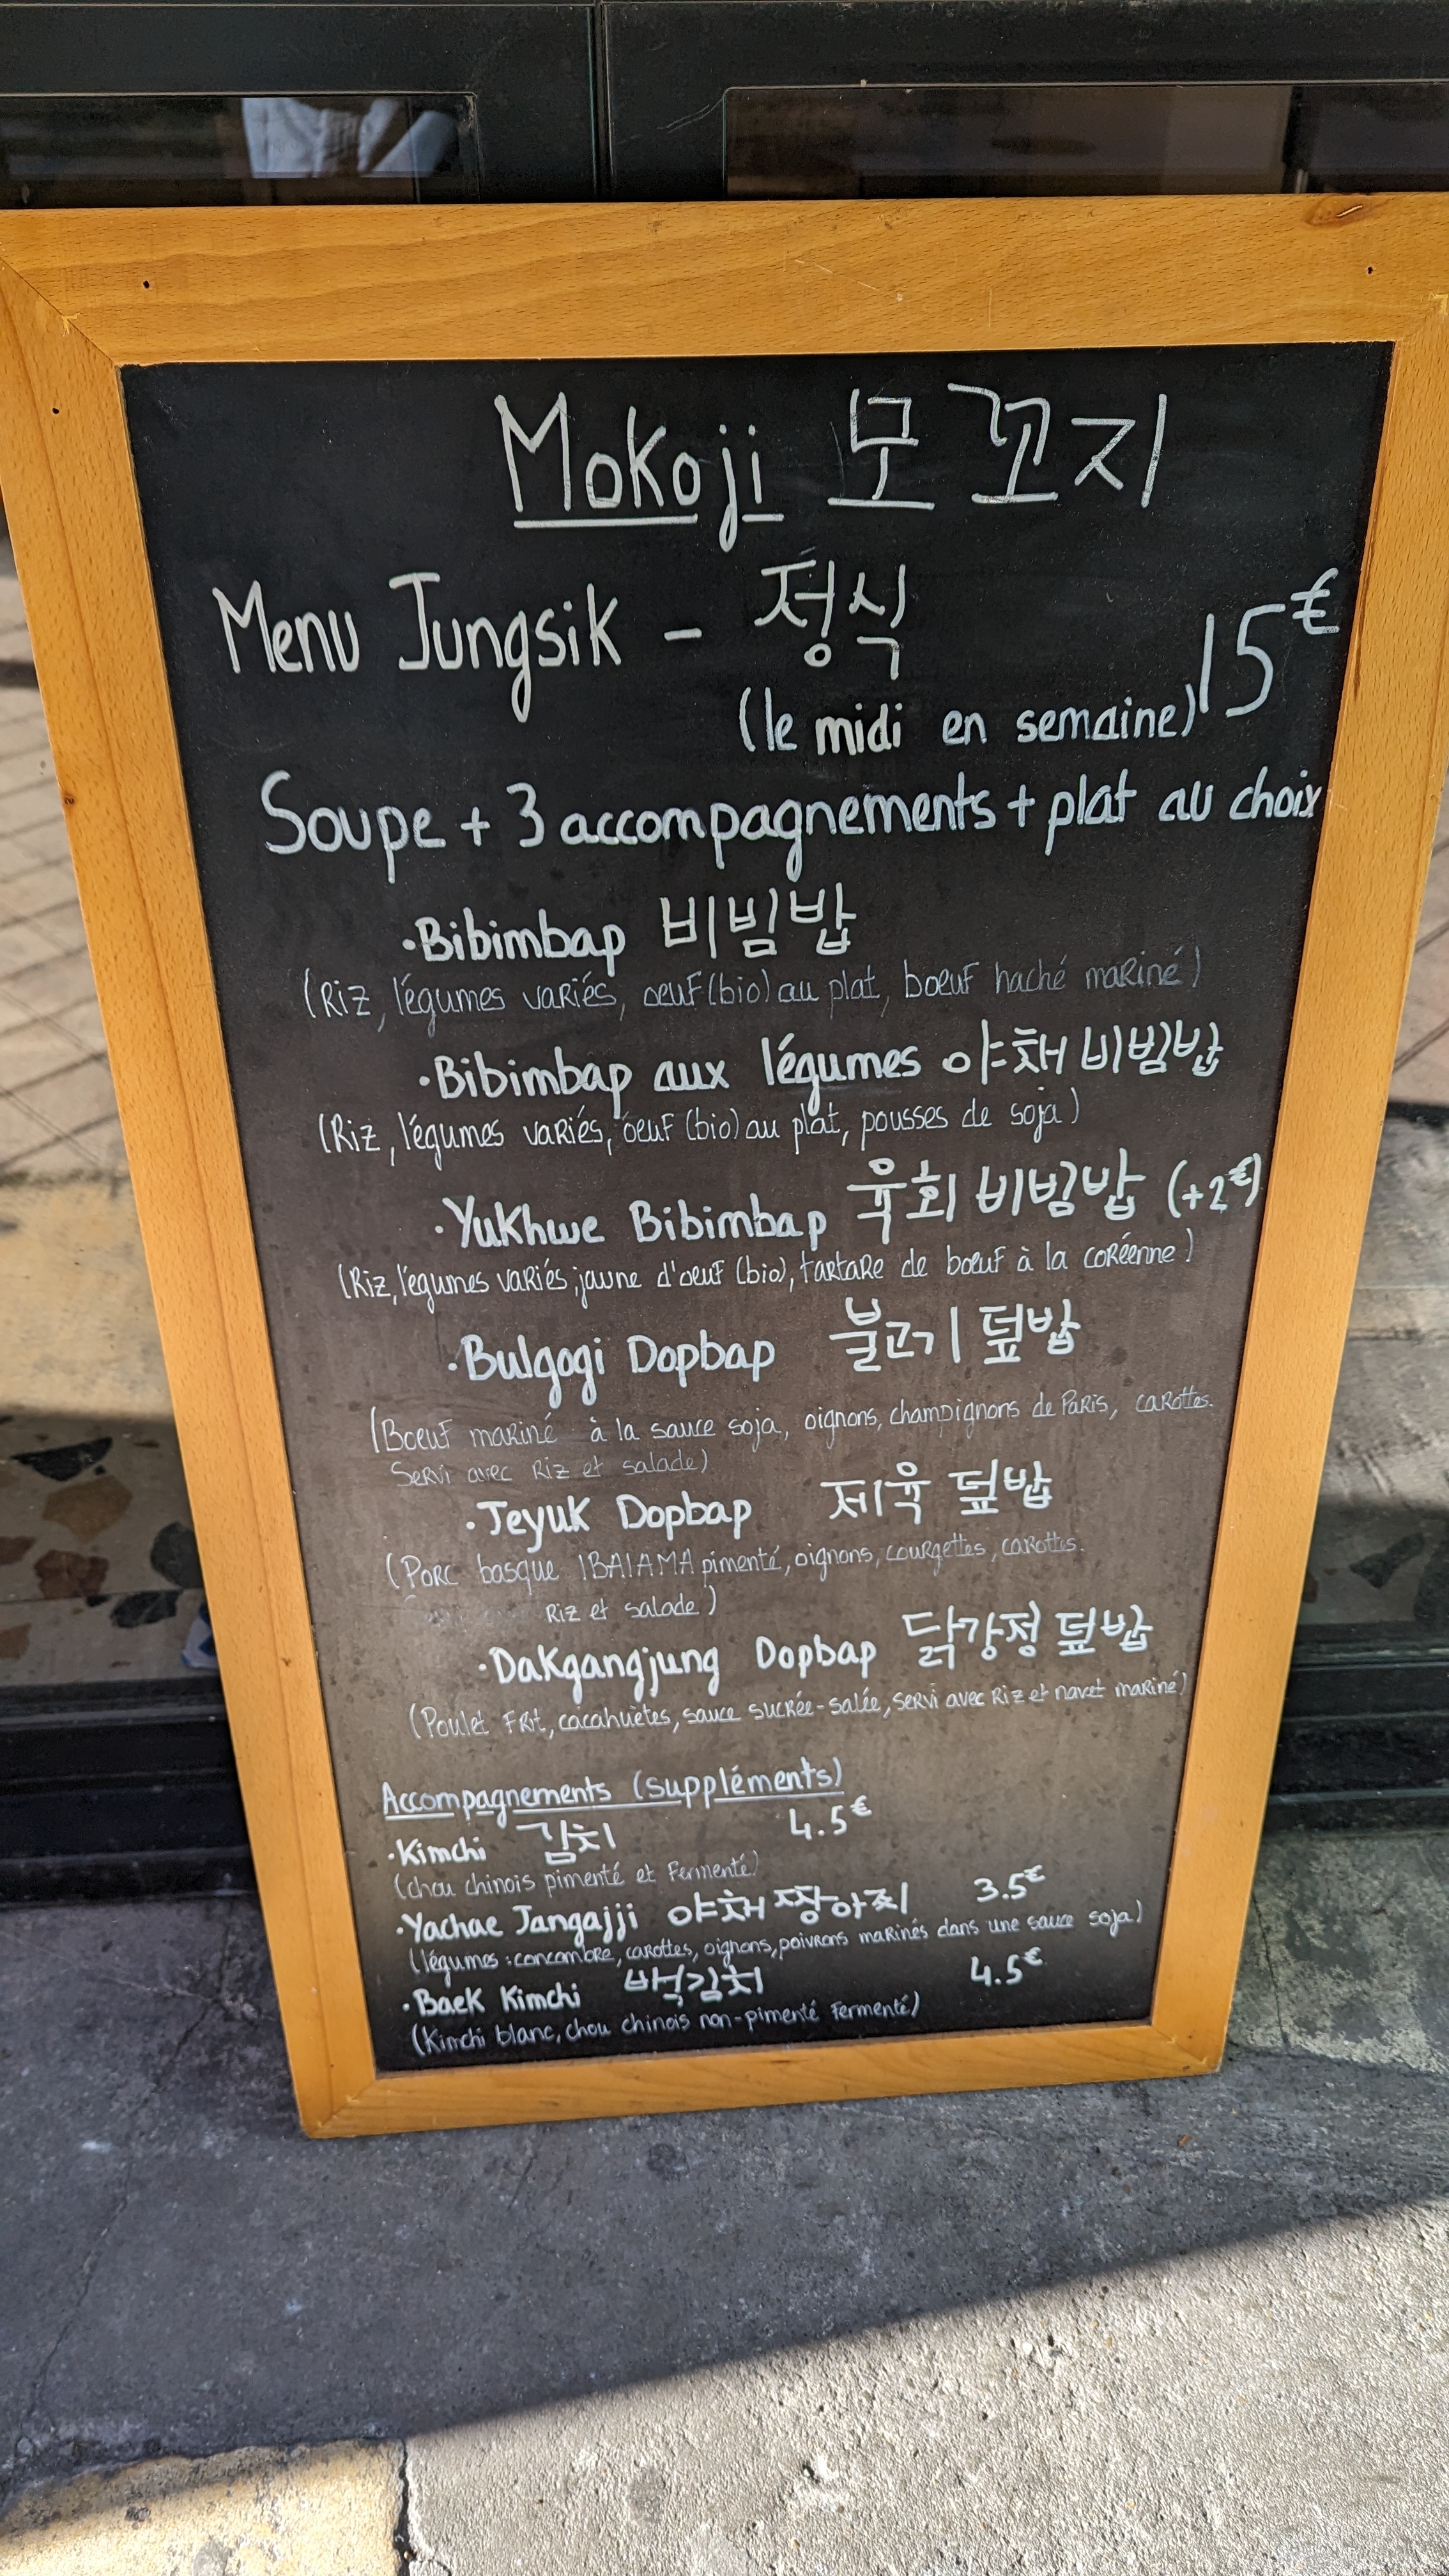 Mokoji 모꼬지
Menu Jungsik - 정식
15€
(le midi en semaine)
Soupe + 3 accompagnements + plat au choix
·Bibimbap 비빔밥
(Riz, légumes variés, oeuf (bio) au plat, boeuf haché mariné)
·Bibimbap aux légumes 야채 비빔밥
(Riz, légumes variés, oeuf (bio) au plat, pousses de soja)
·Yukhwe Bibimbap 육회 비빔밥 (+2€)
(Riz, légumes variés, jaune d'oeuf (bio), tartare de boeuf à la coréenne)
·Bulgogi Dopbap 불고기 덮밥
(Boeuf mariné à la sauce soja, oignons, champignons de Paris, carottes.
Servi avec Riz et salade)
·Jeyuk Dopbap 제육 덮밥
(Porc basque IBAIAMA pimenté, oignons, courgettes, carottes.
Riz et salade)
·Dakgangjung Dopbap 닭강정 덮밥
(Poulet frit, cacahuètes, sauce sucrée-salée, servi avec Riz et navet mariné)
Accompagnements (suppléments)
·Kimchi 김치 4.5€
(chou chinois pimenté et fermenté)
·Yachae Jangajji 야채 짱아찌 3.5€
(légumes : concombre, carottes, oignons, poivrons marinés dans une sauce soja)
·Baek Kimchi 백김치 4.5€
(Kimchi blanc, chou chinois non-pimenté fermenté)